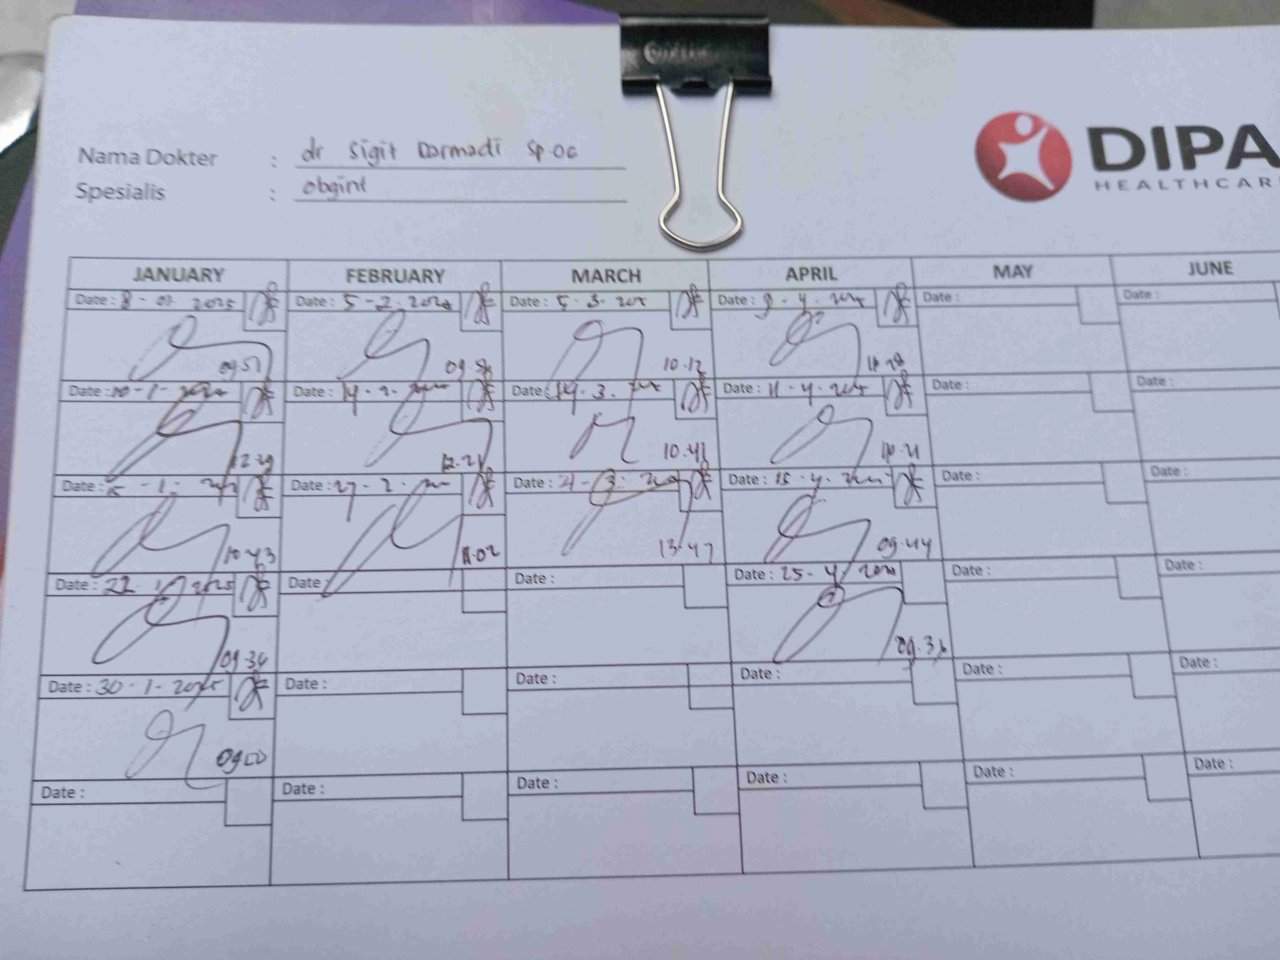 Nama Dokter : dr Sigit Darmadi Sp.OG
Spesialis : obgint
DIPA
HEALTHCAR
JANUARY FEBRUARY MARCH APRIL MAY JUNE
Date : 8-01-2025 Date : 5-2-2025 Date : 5.3. Date : 9-4- Date : Date :
09.51 10.12
Date : 10-1- Date : 14-2- Date : 14.3. Date : 11-4- Date : Date :
12.29 12.21 10.41 10.21
Date : 15-1- Date : 27-2- Date : 21-3- Date : 15-4- Date : Date :
10.43 11.02 13.47 09.44
Date : 22-1-2025 Date Date : Date : 25-4- Date : Date :
09.34
Date : 30-1-2025 Date : Date : Date : Date : Date :
0900
Date : Date : Date : Date : Date : Date :